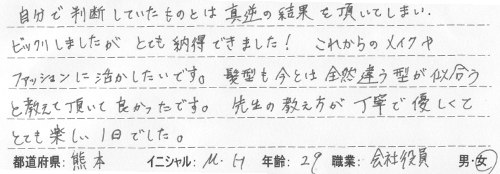 自分で判断していたものとは真逆の結果を頂いてしまい.
ビックリしましたが とても納得できました! これからのメイクや
ファッションに活かしたいです。 髪型も今とは全然違う型が似合う
と教えて頂いて良かったです。 先生の教え方が丁寧で優しくて
とても楽しい1日でした。
都道府県: 熊本 イニシャル: M.H 年齢: 29 職業: 会社役員 男・女